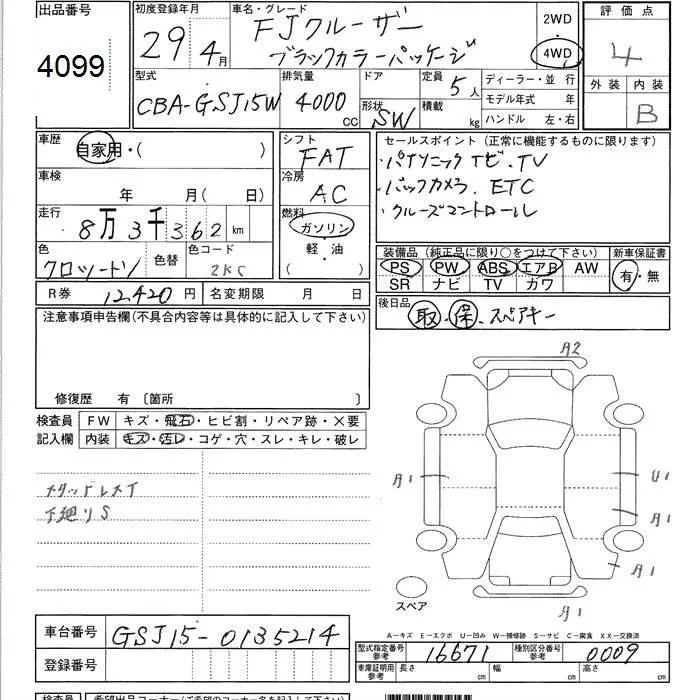 出品番号
4099
初度登録年月
29年 4月
車名・グレード
FJクルーザー
ブラックカラーパッケージ
2WD
4WD
評価点
4
外装 内装
B
型式
CBA-GSJ15W
排気量
4000 cc
ドア
形状
SW
定員
5人
積載
kg
ディーラー・並行
モデル年式 年
ハンドル 左・右
車歴
自家用・( )
シフト
FAT
セールスポイント (正常に機能するものに限ります)
・パナソニックナビ.TV
・バックカメラ. ETC
・クルーズコントロール
車検
年 月( 日)
冷房
AC
走行
8万3千362km
燃料
ガソリン
軽・油
( )
色
クロツートン
色替
色コード
2KC
装備品 (純正品に限り○をつけて下さい)
PS PW ABS エアB AW
SR ナビ TV カワ
新車保証書
有・無
R券 12,420円
名変期限 月 日
後日品
取.保.スペアキー
注意事項申告欄(不具合内容等は具体的に記入して下さい)
修復歴 有 〔箇所 〕
検査員
記入欄
FW キズ・飛石・ヒビ割・リペア跡・×要
内装 キズ・汚レ・コゲ・穴・スレ・キレ・破レ
下廻りS
A2
A1
U1
A1
A1
A1
スペア
A-キズ E-エクボ U-凹み W-補修跡 S-サビ C-腐食 XX-交換済
車台番号
GSJ15-0135214
登録番号
型式指定番号
参考
16671
種別区分番号
参考
0009
車庫証明用
参考
長さ cm 幅 cm 高さ cm
検査員
希望出品コーナー(ご希望のコーナー名を記入下さい)